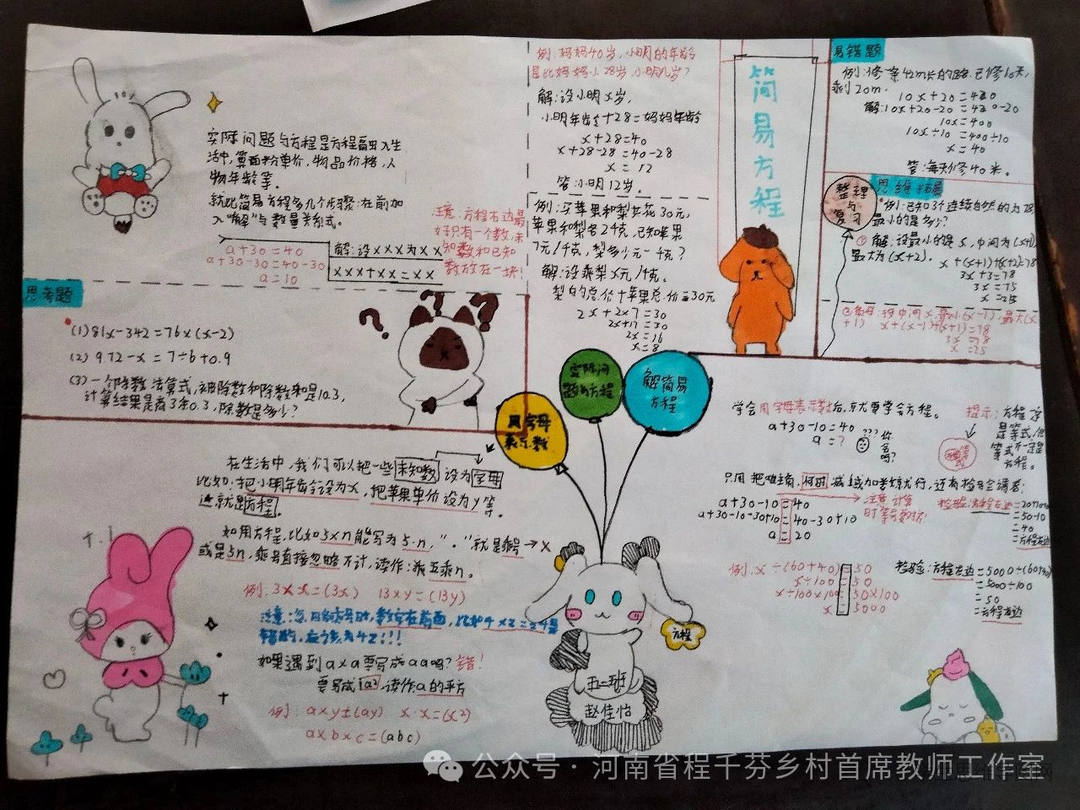 简易方程
实际问题与方程是方程融入生
活中,算面粉单价,物品价格,人
物年龄等。
就比简易方程多几个步骤:在前加
入“解”与数量关系式。
a+30=40
a+30-30=40-30
a=10
解:设×××为××
×××+××=××
注意:方程右边最
好只有一个数,未
知数和已知
数放在一块!
例:妈妈40岁,小明的年龄
是比妈妈小28岁,小明几岁?
解:设小明x岁,
小明年龄+28=妈妈年龄
x+28=40
x+28-28=40-28
x=12
答:小明12岁。
例:买苹果和梨共花30元,
苹果和梨各2千克,已知苹果
7元/千克,梨多少元一千克?
解:设梨x元/千克。
梨的总价+苹果总价=30元
2x+2×7=30
2x+14=30
2x=16
x=8
易错题
例:修一条420m长的路.已修10天,
剩20m.
10x+20=420
解:10x+20-20=420-20
10x=400
10x÷10=400÷10
x=40
答:每天修40米。
整理
与
复习
思维拓展
例:已知3个连续自然的为78,
最小的是多少?
①解:设最小的是x,中间为(x+1)
最大为(x+2).
x+(x+1)+(x+2)=78
3x+3=78
3x=75
x=25
思考题
(1)81x-342=76×(x-2)
(2)9.12-x=7÷b+0.9
(3)一个除数法算式,被除数和除数和是10.3,
计算结果是商3余0.3,除数是多少?
用字母
表示数
实际问
题与方程
解简易
方程
在生活中,我们可以把一些未知数设为字母
比如:把小明年龄设为x,把苹果单价设为y等.
这就是方程.
如用方程,比如5×n能写为5·n,“·”就是乘号→×
或是5n,乘号直接忽略不计,读作:乘五乘n。
例:3×x=(3x) 13×y=(13y)
错的,应该为4z!!!
如果遇到a×a要写成aa吗?错!
要写成a²,读作:a的平方
例: a×y=(ay) x·x=(x²)
a×b×c=(abc)
学会用字母表示数后,就要学会方程。
a+30-10=40
a=?
???你
会
吗?
提示:方程一定
是等式,但
等式不一定是
方程。
a+30-10=40
a+30-10-30+10=40-30+10
a=20
注意:计算
时等号要对齐
检验:方程左边=20+30-10
=50-10
=40
=方程右边
例:x÷(60+40)=50
x÷100=50
x÷100×100=50×100
x=5000
检验:方程左边=5000÷(60+40)
=5000÷100
=50
=方程右边
方程
五二班
赵佳怡
公众号·河南省程千芬乡村首席教师工作室